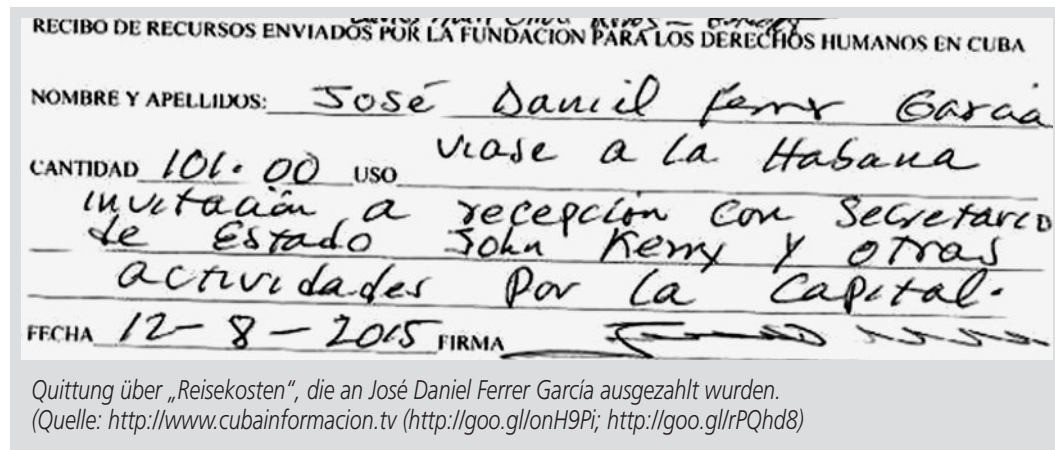 RECIBO DE RECURSOS ENVIADOS POR LA FUNDACION PARA LOS DERECHOS HUMANOS EN CUBA
NOMBRE Y APELLIDOS: José Daniel Ferrer García
CANTIDAD 101.00 USO Viaje a la Habana
invitación a recepción con Secretario
de Estado John Kerry y otras
actividades por la Capital.
FECHA 12-8-2015 FIRMA
Quittung über „Reisekosten“, die an José Daniel Ferrer García ausgezahlt wurden.
(Quelle: http://www.cubainformacion.tv (http://goo.gl/onH9Pi; http://goo.gl/rPQhd8)